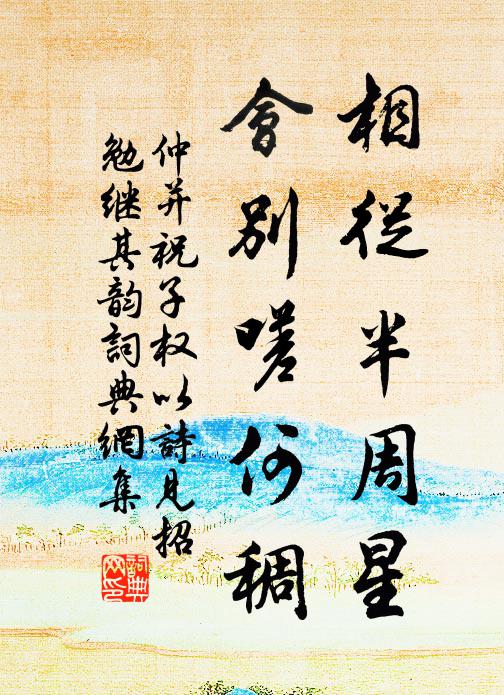 相從半周星
會別嗟何稠
仲并祝子权以詩見招
勉继其韵詞典網集
詞典网印